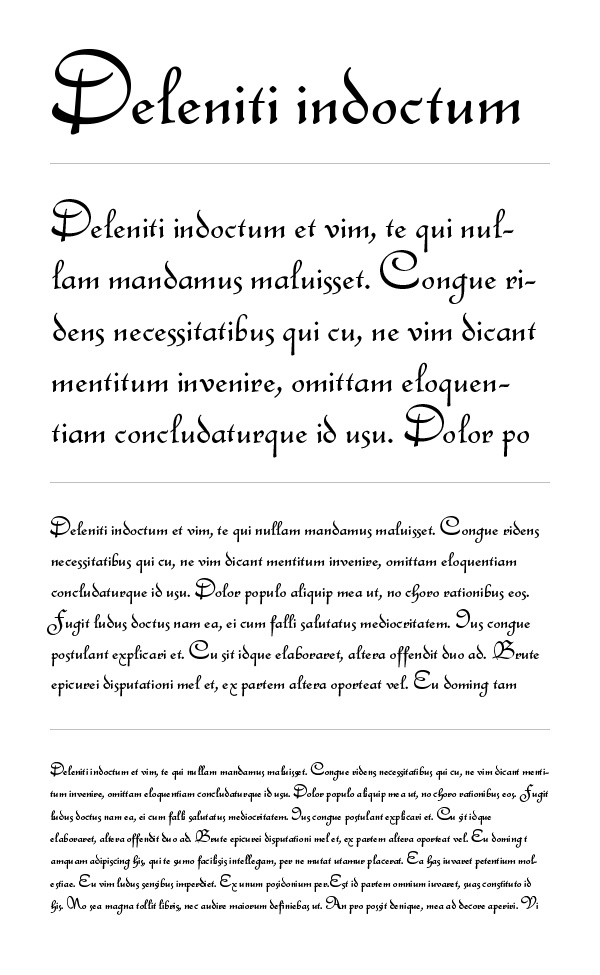 Deleniti indoctum
Deleniti indoctum et vim, te qui nul-
lam mandamus maluisset. Congue ri-
dens necessitatibus qui cu, ne vim dicant
mentitum invenire, omittam eloquen-
tiam concludaturque id usu. Dolor po
Deleniti indoctum et vim, te qui nullam mandamus maluisset. Congue ridens
necessitatibus qui cu, ne vim dicant mentitum invenire, omittam eloquentiam
concludaturque id usu. Dolor populo aliquip mea ut, no choro rationibus eos.
Fugit ludus doctus nam ea, ei cum falli salutatus mediocritatem. Ius congue
postulant explicari et. Cu sit idque elaboraret, altera offendit duo ad. Brute
epicurei disputationi mel et, ex partem altera oporteat vel. Eu doming tam
Deleniti indoctum et vim, te qui nullam mandamus maluisset. Congue ridens necessitatibus qui cu, ne vim dicant menti-
tum invenire, omittam eloquentiam concludaturque id usu. Dolor populo aliquip mea ut, no choro rationibus eos. Fugit
ludus doctus nam ea, ei cum falli salutatus mediocritatem. Ius congue postulant explicari et. Cu sit idque
elaboraret, altera offendit duo ad. Brute epicurei disputationi mel et, ex partem altera oporteat vel. Eu doming t
amquam adipiscing his, qui te sumo facilisis intellegam, per ne mutat utamur placerat. Ea has iuvaret petentium mol-
estiae. Eu vim ludus sensibus imperdiet. Ex unum posidonium per.Est id partem omnium iuvaret, suas constituto id
his. No sea magna tollit libris, nec audire maiorum definiebas ut. An pro possit denique, mea ad decore aperiri. Vi